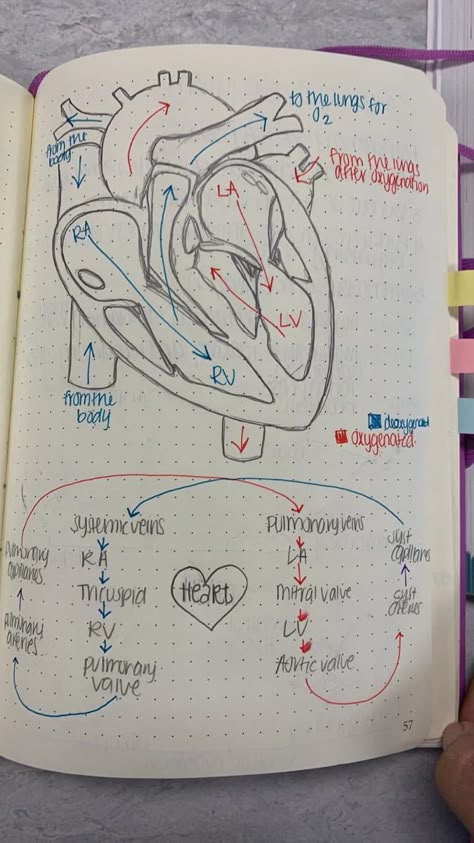 to the lungs for
O2
from the
body
from the lungs
after oxygenation
LA
RA
LV
RV
from the
body
deoxygenated
oxygenated
systemic veins
RA
Tricuspid
RV
pulmonary
valve
pulmonary
capillaries
pulmonary
arteries
Heart
pulmonary veins
LA
mitral valve
LV
Aortic valve
syst
capillaries
syst
arteries
57